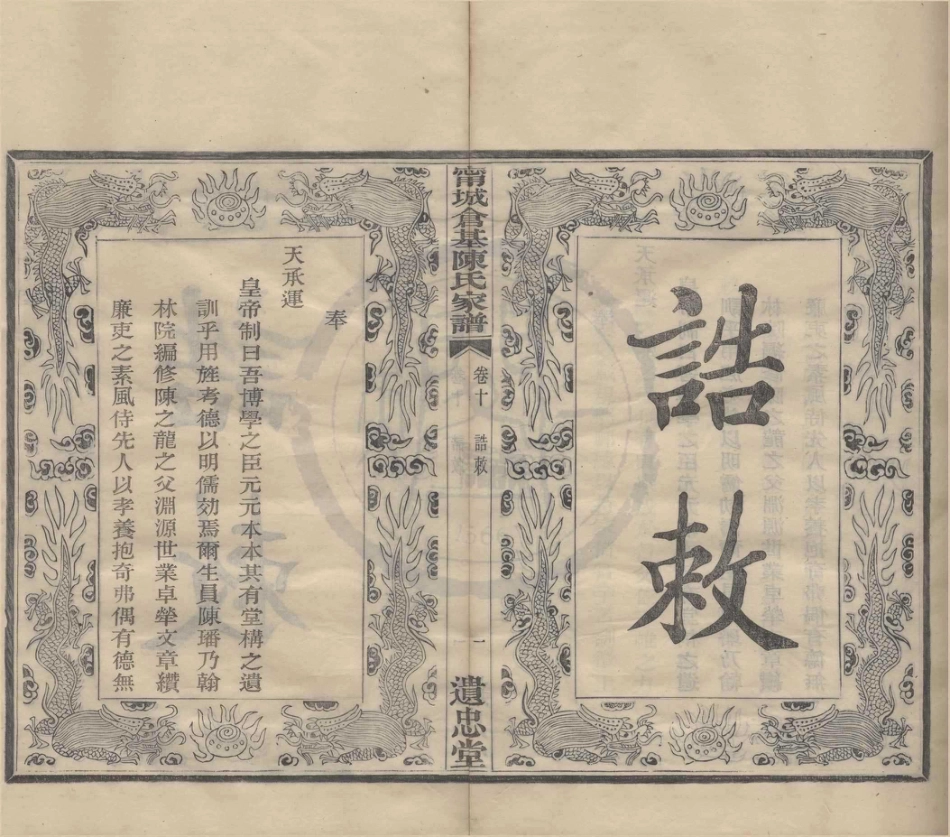 誥敕
甯城倉基陳氏家譜
卷十
誥敕
一
遺忠堂
奉
天承運
皇帝制曰吾博學之臣元元本本其有堂構之遺
訓乎用旌考德以明儒効焉爾生員陳璠乃翰
林院編修陳之龍之父淵源世業卓犖文章纘
廉吏之素風侍先人以孝養抱奇弗偶有德無